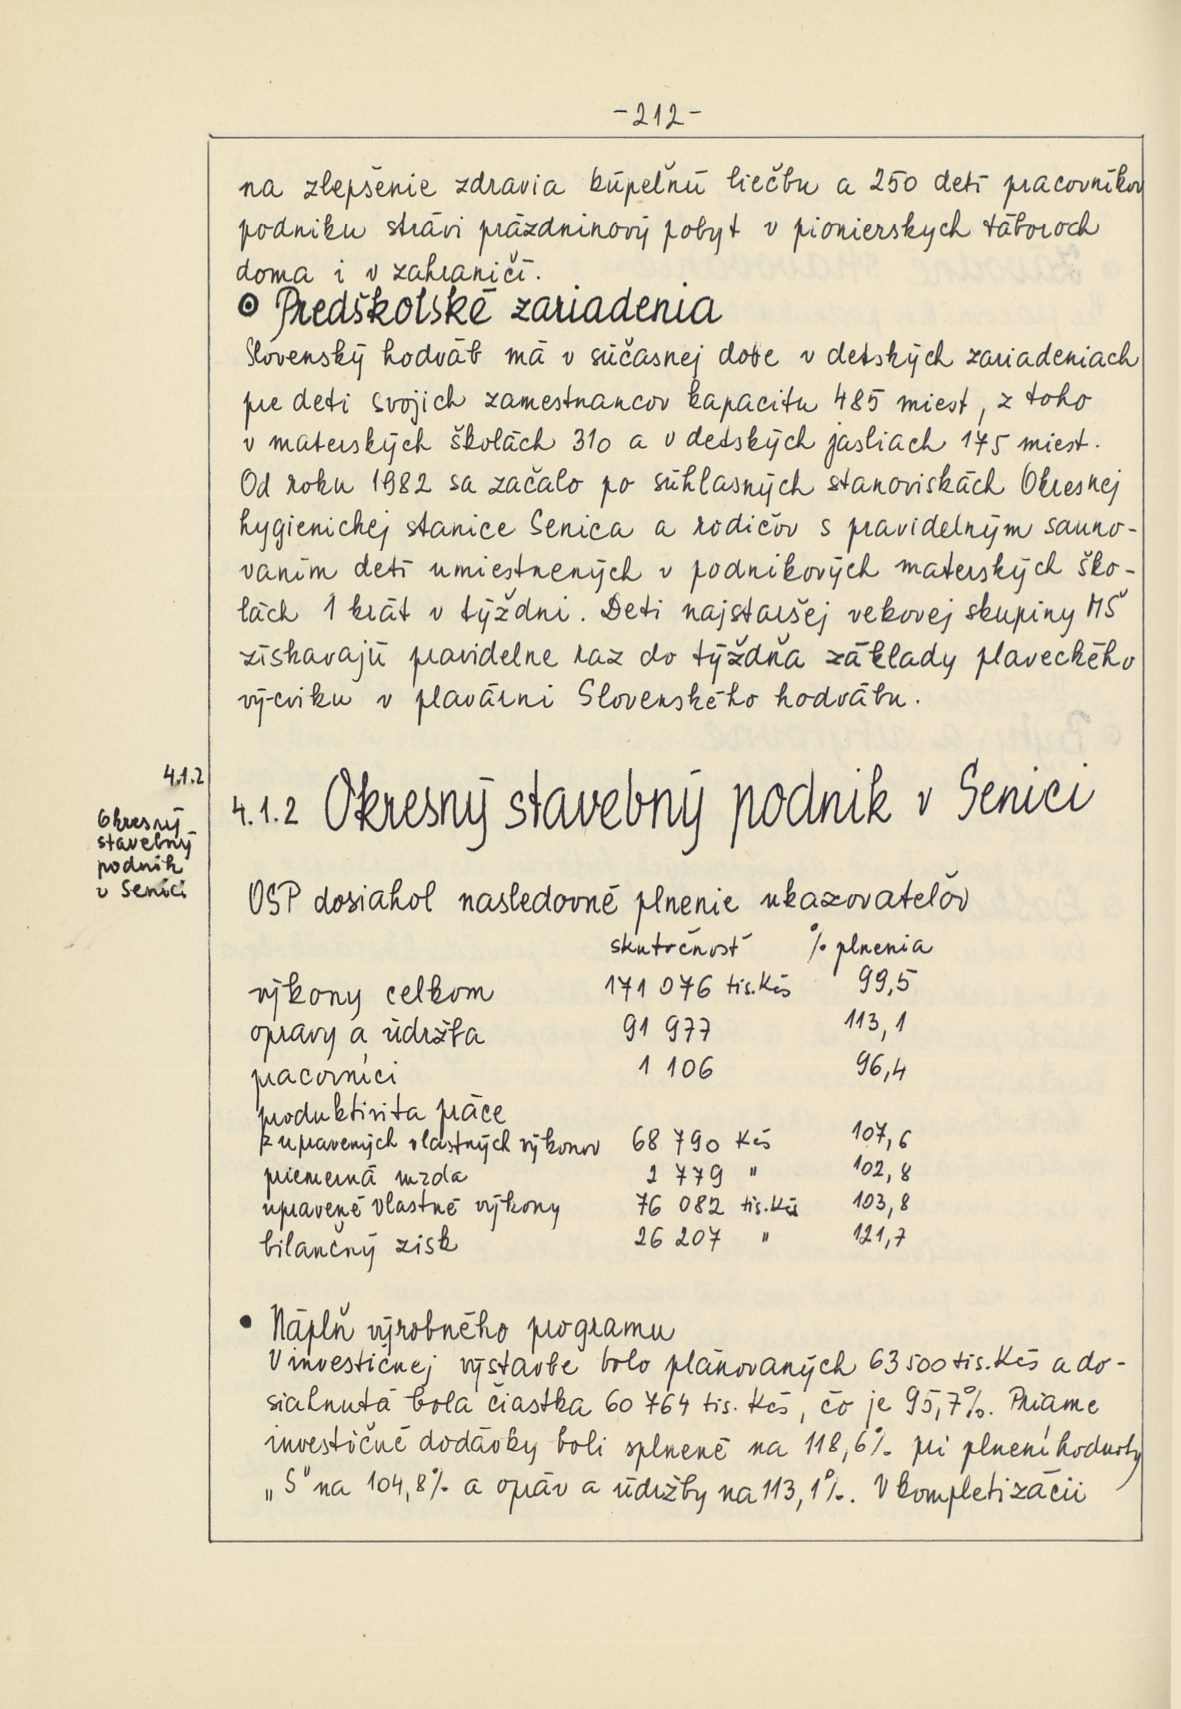 -212-
na zlepšenie zdravia kúpeľnú liečbu a 250 detí pracovníkov
podniku strávi prázdninový pobyt v pionierskych táboroch
doma i v zahraničí.
⊙ Predškolské zariadenia
Slovenský hodváb má v súčasnej dobe v detských zariadeniach
pre deti svojich zamestnancov kapacitu 485 miest, z toho
v materských školách 310 a v detských jasliach 175 miest.
Od roku 1982 sa začalo po súhlasných stanoviskách Okresnej
hygienickej stanice Senica a rodičov s pravidelným sauno-
vaním detí umiestnených v podnikových materských ško-
lách 1 krát v týždni. Deti najstaršej vekovej skupiny MŠ
získavajú pravidelne raz do týždňa základy plaveckého
výcviku v plavárni Slovenského hodvábu.
4.1.2
Okresný
stavebný
podnik
v Senici
4.1.2 Okresný stavebný podnik v Senici
OSP dosiahol nasledovné plnenie ukazovateľov
skutočnosť % plnenia
výkony celkom 171 076 tis. Kčs 99,5
opravy a údržba 91 977 113,1
pracovníci 1 106 96,4
produktivita práce
z upravených vlastných výkonov 68 790 Kčs 107,6
priemerná mzda 2 779 " 102,8
upravené vlastné výkony 76 082 tis. Kčs 103,8
bilančný zisk 26 207 " 121,7
• Náplň výrobného programu
V investičnej výstavbe bolo plánovaných 63 500 tis. Kčs a do-
siahnutá bola čiastka 60 764 tis. Kčs, čo je 95,7%. Priame
investičné dodávky boli splnené na 118,6% pri plnení hodnoty
„S" na 104,8% a opráv a údržby na 113,1%. V kompletizácii